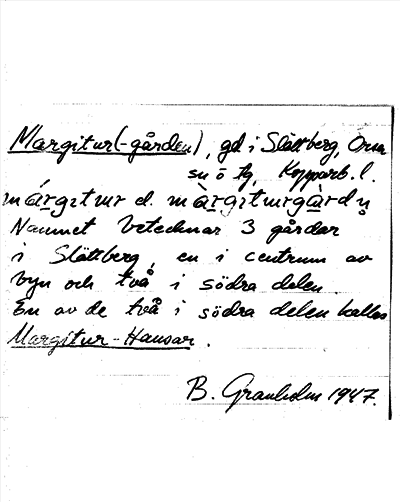 Margitur(-gården), gd i Slättberg, Orsa
sn o tg, Kopparb. l.
márgıtur el. màrgıturgàrdṇ
Namnet betecknar 3 gårdar
i Slättberg, en i centrum av
byn och två i södra delen.
En av de två i södra delen kallas
Margitur-Hansar.
B. Granholm 1947.